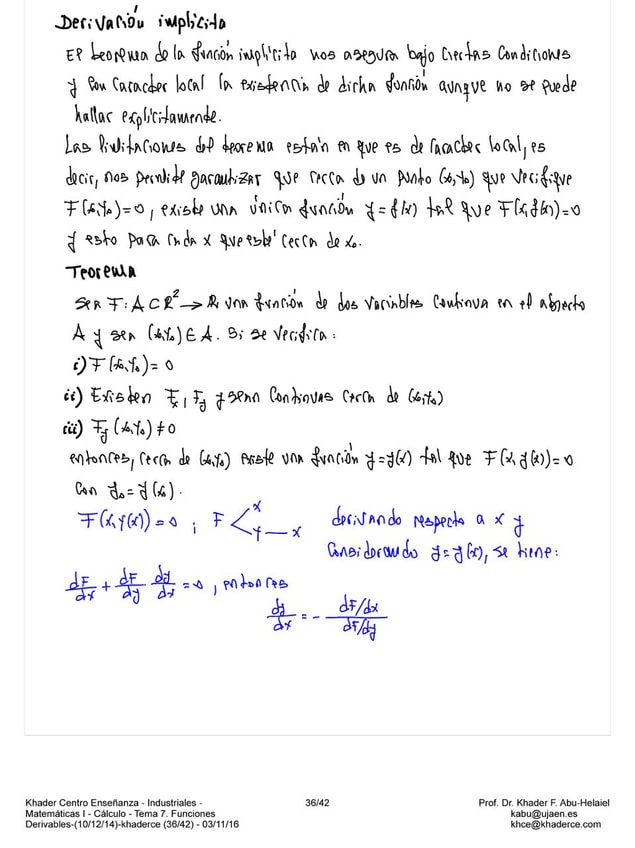 Derivación implícita
El teorema de la función implícita nos asegura bajo ciertas condiciones
y con caracter local la existencia de dicha función aunque no se puede
hallar explícitamente.
Las limitaciones del teorema están en que es de caracter local, es
decir, nos permite garantizar que cerca de un punto (x₀,y₀) que verifique
F(x₀,y₀)=0, existe una única función y=f(x) tal que F(x,f(x))=0
y esto para cada x que esté cerca de x₀.
Teorema
Sea F: A⊂R² → R una función de dos variables continua en el abierto
A y sea (x₀,y₀)∈A. Si se verifica:
i) F(x₀,y₀)=0
ii) Existen Fx, Fy y sean continuas cerca de (x₀,y₀)
iii) Fy(x₀,y₀)≠0
entonces, cerca de (x₀,y₀) existe una función y=y(x) tal que F(x,y(x))=0
con y₀=y(x₀).
F(x,y(x))=0 ; F < x y — x derivando respecto a x y
considerando y=y(x), se tiene:
dF/dx + dF/dy dy/dx = 0, entonces
dy/dx = - (dF/dx)/(dF/dy)
Khader Centro Enseñanza - Industriales - 36/42 Prof. Dr. Khader F. Abu-Helaiel
Matemáticas I - Cálculo - Tema 7. Funciones kabu@ujaen.es
Derivables-(10/12/14)-khaderce (36/42) - 03/11/16 khce@khaderce.com